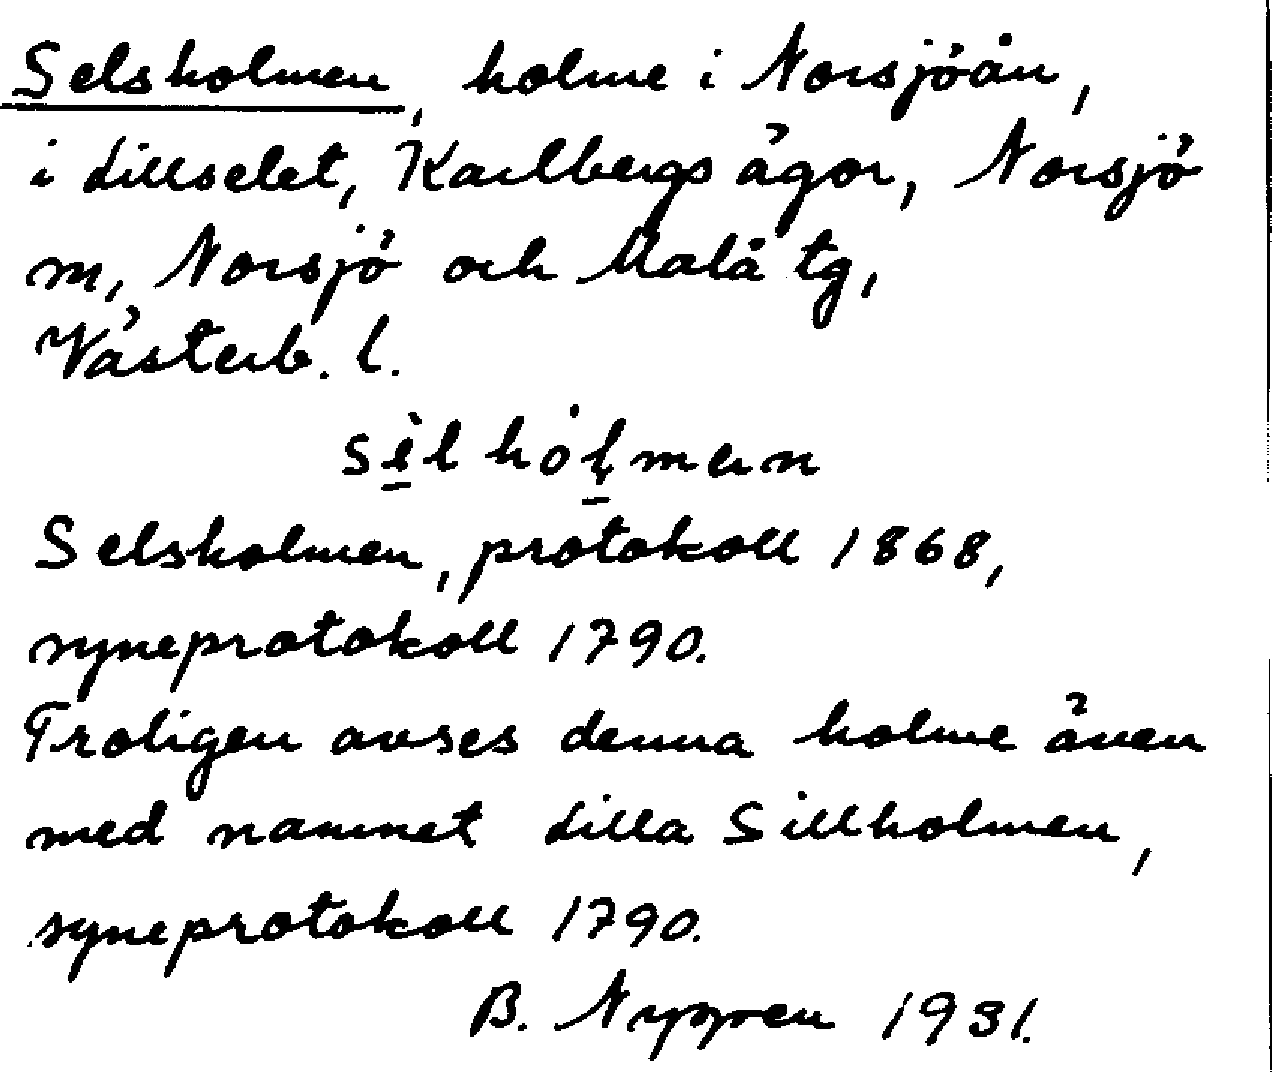 Selsholmen, holme i Norsjöån,
i Lillselet, Karlbergs ägor, Norsjö
m, Norsjö och Malå tg,
Västerb. l.
Selsholmen, protokoll 1868,
syneprotokoll 1790.
Troligen avses denna holme även
med namnet Lilla Sillholmen,
syneprotokoll 1790.
B. Nygren 1931.